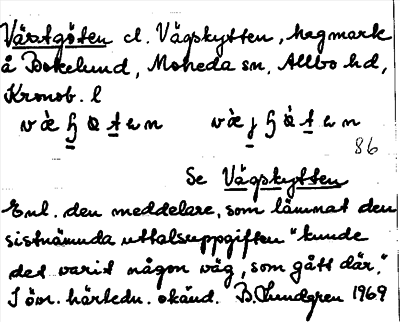 Värstgöten el. Vägskytten, hagmark
å Bokelund, Moheda sn, Allbo hd,
Kronob. l
86
Se Vägskytten
Enl. den meddelare, som lämnat den
sistnämnda uttalsuppgiften "kunde
det varit någon väg, som gått där."
I övr. härledn. okänd. B. Lundgren 1969